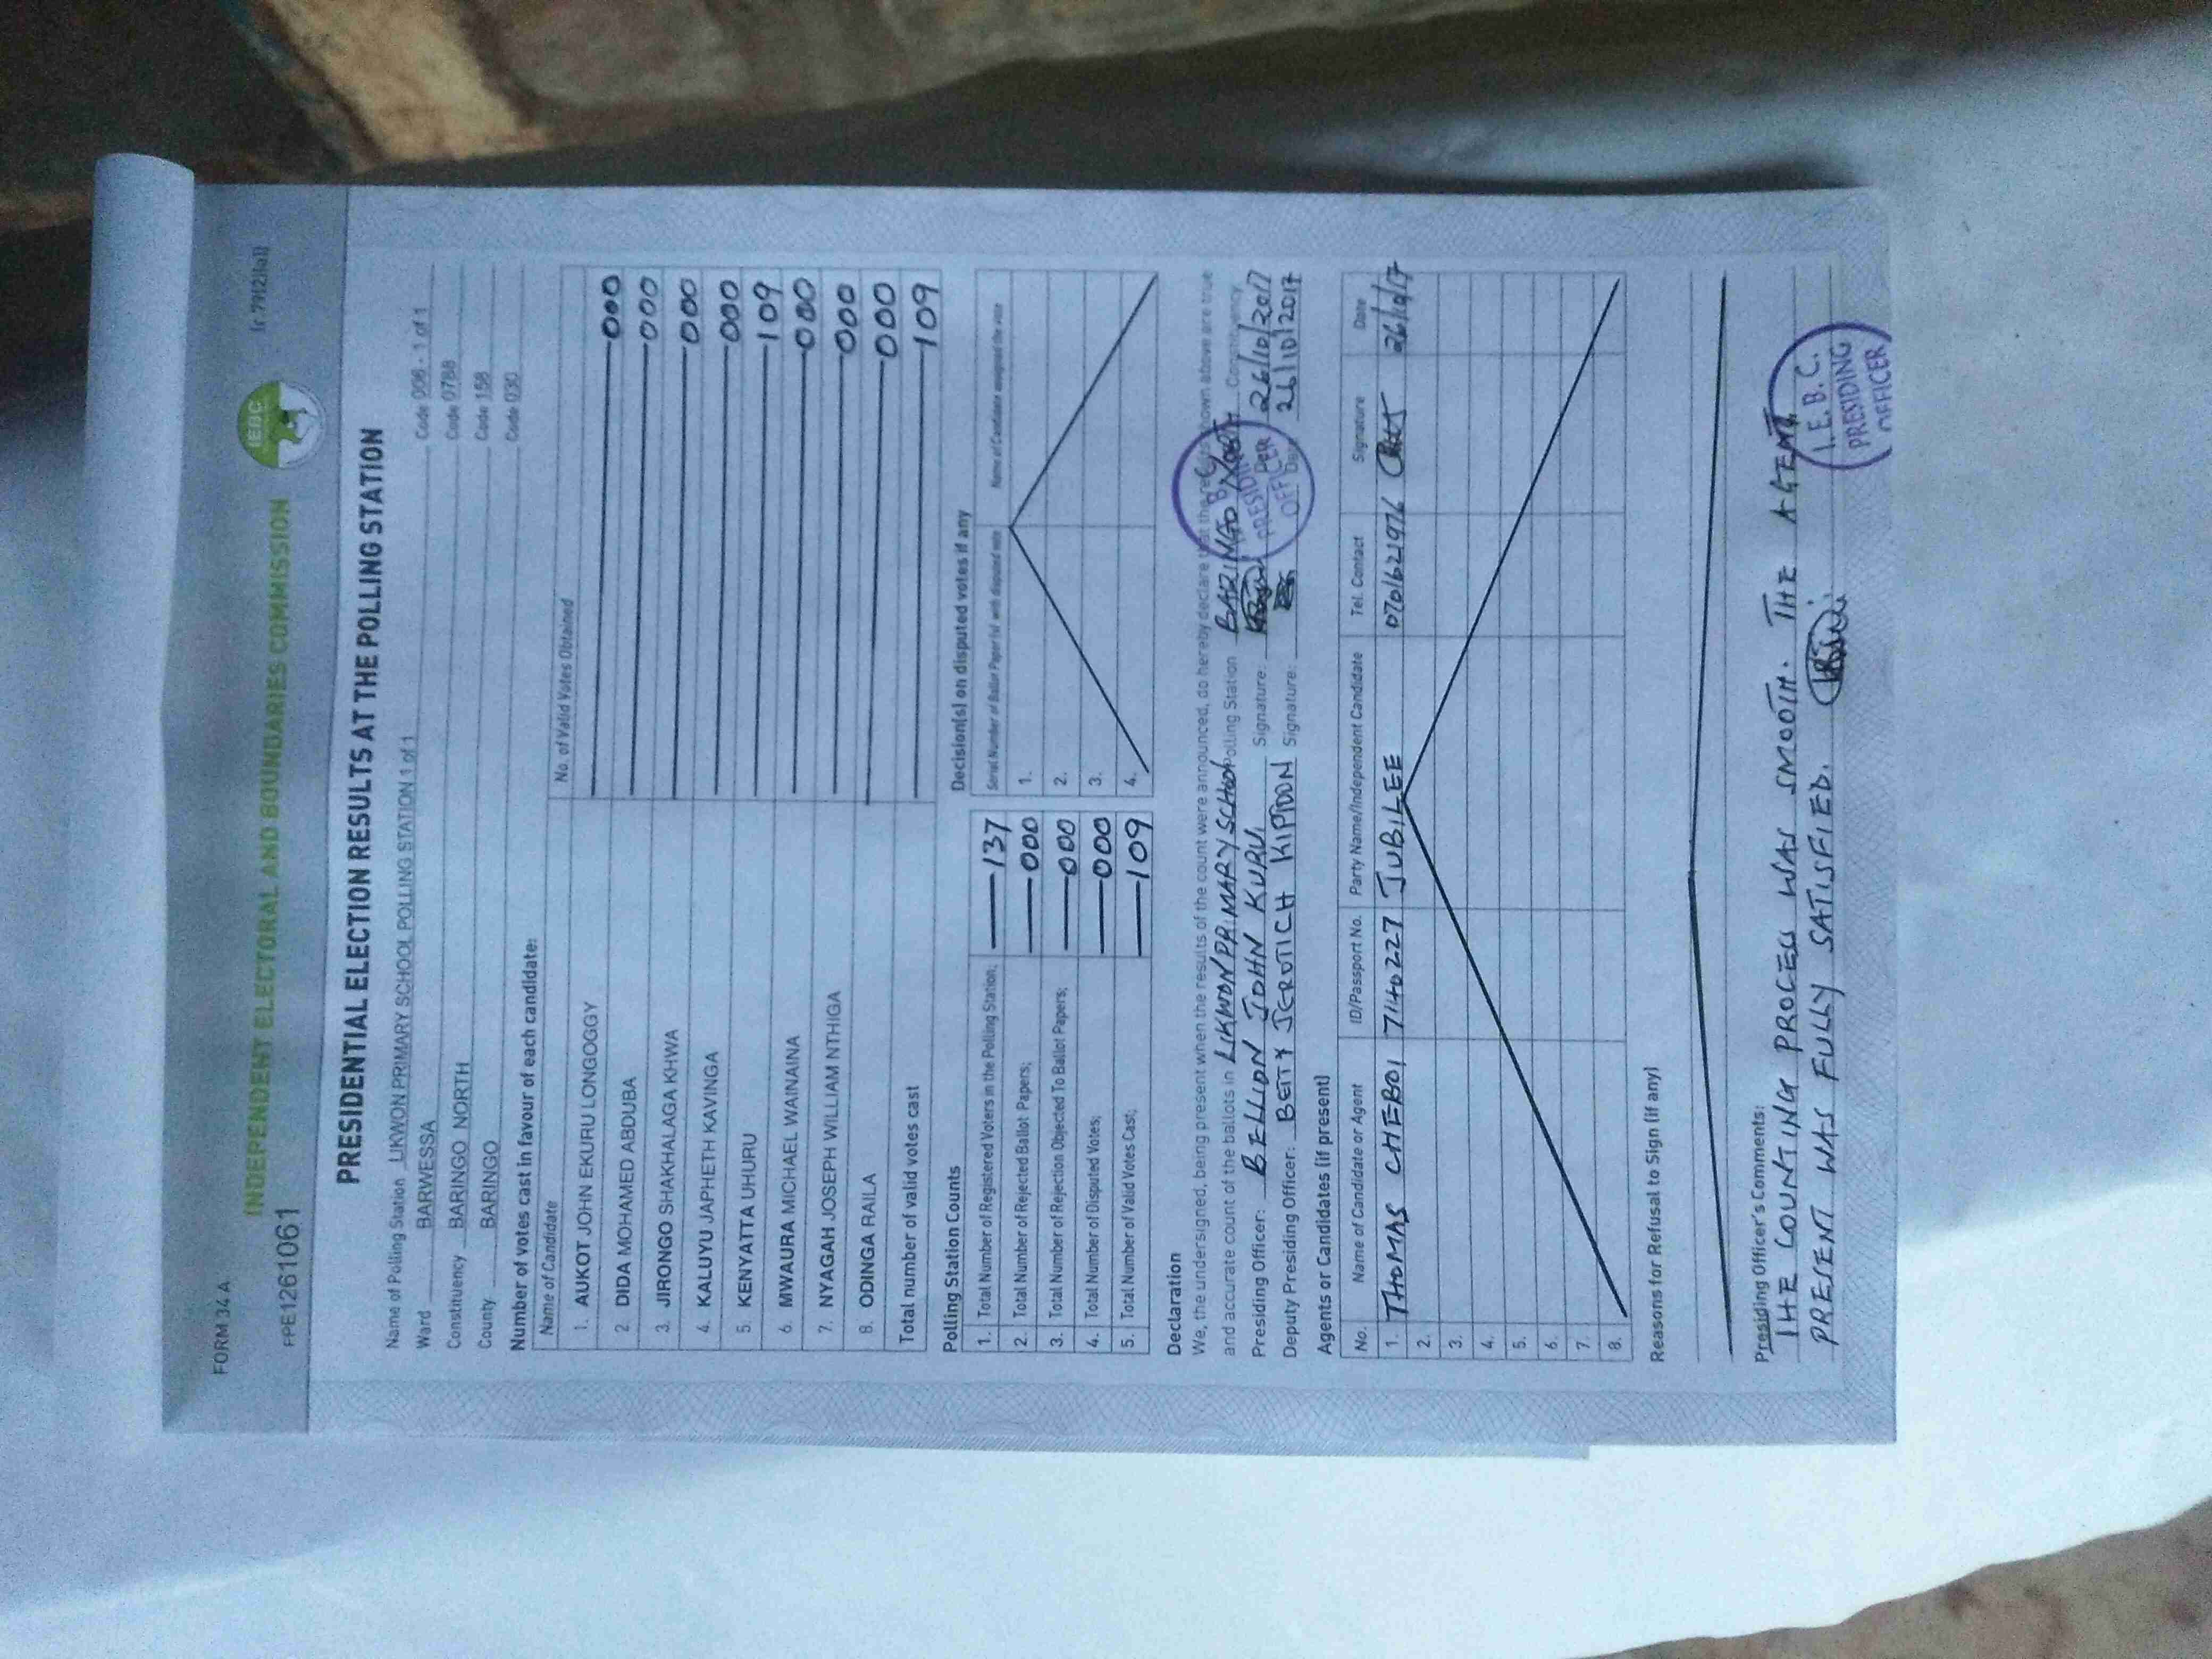 FORM 34 A
(r 79(2)(a))
FPE1261061
INDEPENDENT ELECTORAL AND BOUNDARIES COMMISSION
IEBC
PRESIDENTIAL ELECTION RESULTS AT THE POLLING STATION
Name of Polling Station LIKWON PRIMARY SCHOOL POLLING STATION 1 of 1 Code 006 - 1 of 1
Ward BARWESSA Code 0788
Constituency BARINGO NORTH Code 158
County BARINGO Code 030
Number of votes cast in favour of each candidate:
Name of Candidate No. of Valid Votes Obtained
1. AUKOT JOHN EKURU LONGOGGY 000
2 DIDA MOHAMED ABDUBA 000
3. JIRONGO SHAKHALAGA KHWA 000
4. KALUYU JAPHETH KAVINGA 000
5. KENYATTA UHURU 109
6. MWAURA MICHAEL WAINAINA 000
7. NYAGAH JOSEPH WILLIAM NTHIGA 000
8. ODINGA RAILA 000
Total number of valid votes cast 109
Polling Station Counts
1. Total Number of Registered Voters in the Polling Station; 137
2. Total Number of Rejected Ballot Papers; 000
3. Total Number of Rejection Objected To Ballot Papers; 000
4. Total Number of Disputed Votes; 000
5. Total Number of Valid Votes Cast; 109
Decision(s) on disputed votes if any
Serial Number of Ballot Paper(s) with disputed vote Name of Candidate assigned the vote
1.
2.
3.
4.
Declaration
We, the undersigned, being present when the results of the count were announced, do hereby declare that the results shown above are true
and accurate count of the ballots in LIKWON PRIMARY SCHOOL Polling Station BARINGO NORTH Constituency
Presiding Officer: BELLION JOHN KURUI Signature: 26/10/2017
Deputy Presiding Officer: BETTY JEROTICH KIPTOON Signature: Date 26/10/2017
PRESIDING OFFICER
Agents or Candidates (if present)
No. Name of Candidate or Agent ID/Passport No. Party Name/Independent Candidate Tel. Contact Signature Date
1. THOMAS CHEBOI 7140227 JUBILEE 0701621976 26/10/17
2.
3.
4.
5.
6.
7.
8.
Reasons for Refusal to Sign (if any)
Presiding Officer's Comments:
THE COUNTING PROCESS WAS SMOOTH. THE AGENT
PRESENT WAS FULLY SATISFIED.
I.E.B.C.
PRESIDING
OFFICER